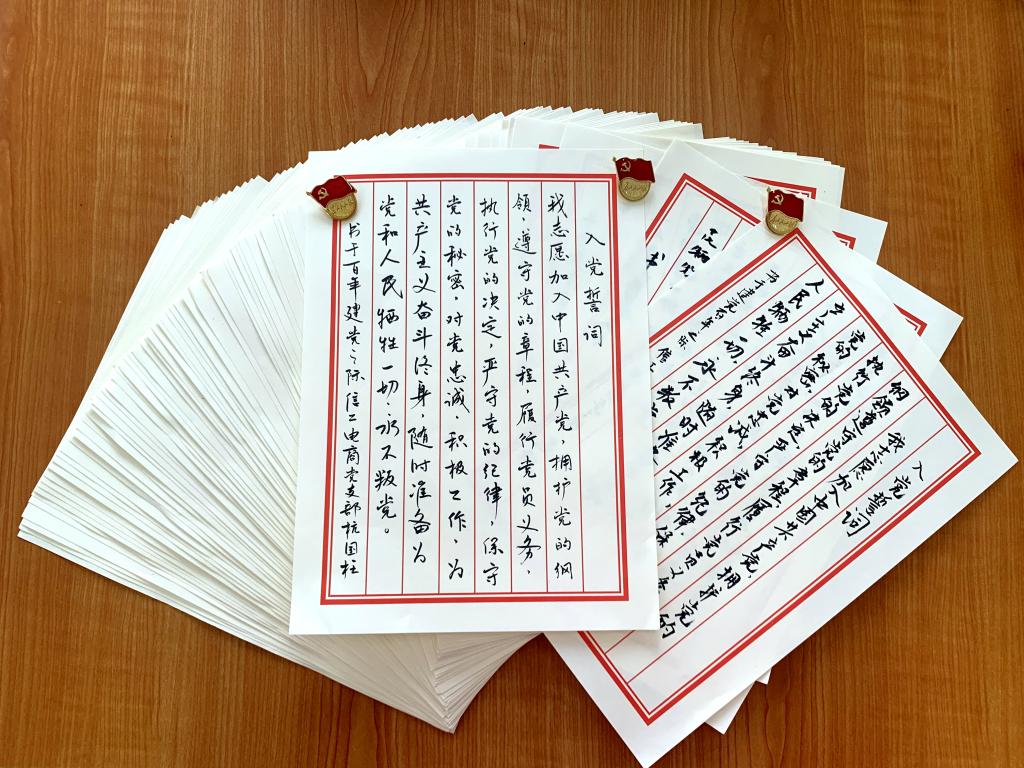 入党誓词
我志愿加入中国共产党，拥护党的纲
领，遵守党的章程，履行党员义务，
执行党的决定，严守党的纪律，保守
党的秘密，对党忠诚，积极工作，为
共产主义奋斗终身，随时准备为
党和人民牺牲一切，永不叛党。
书于百年建党之际信工电商党支部杭国柱
入党誓词
我志愿加入中国共产党，拥护党的
纲领遵守党的章程，履行党员义务
执行党的决定，严守党的纪律，保
党的秘密，对党忠诚，积极工作，
产主义奋斗终身，随时准
人民牺牲一切，永不叛
书于建党百年之际